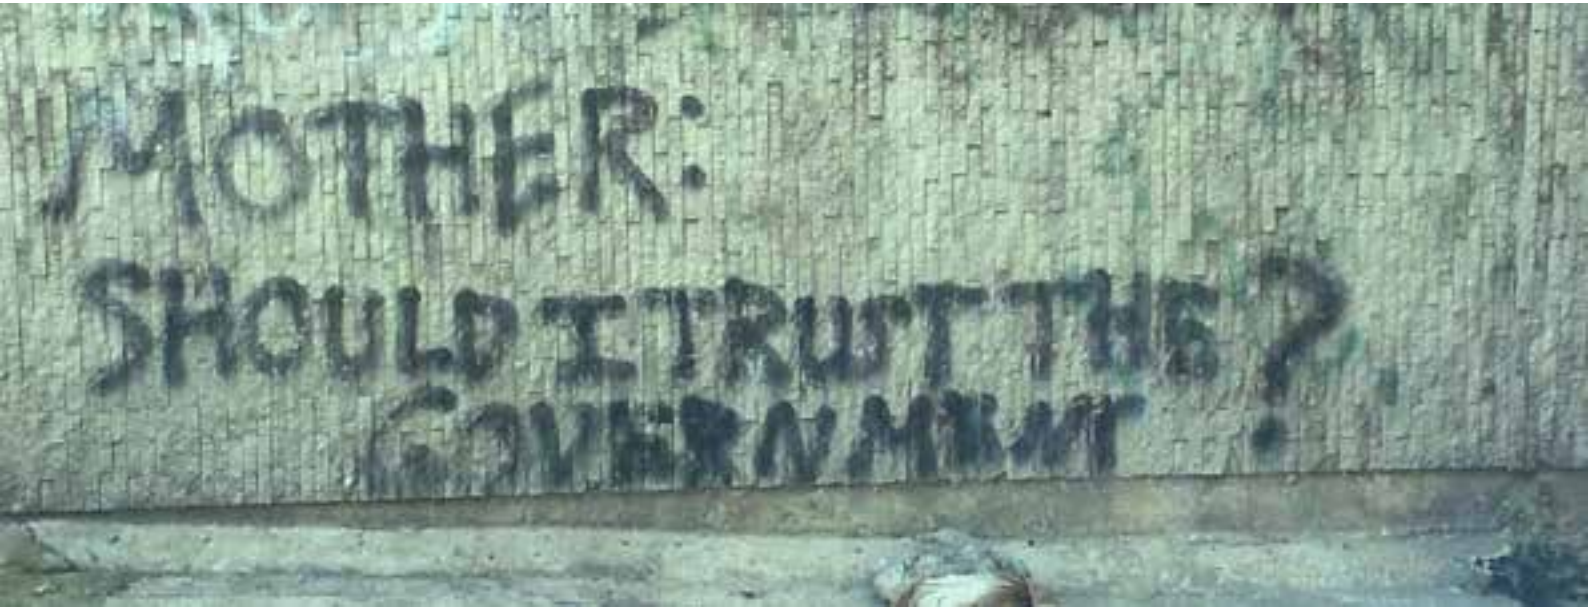 MOTHER:
SHOULD I TRUST THE ?
GOVERNMENT